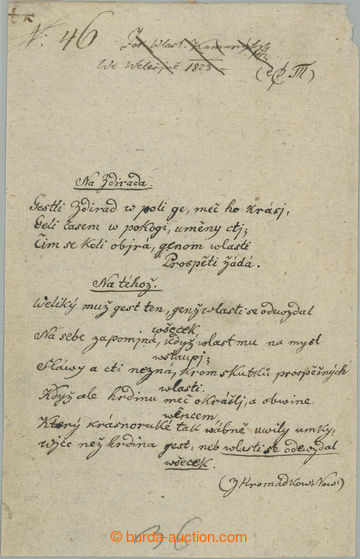 N. 46
Jos. Wlast. Kamarýt
We Welešjně 1823.
(d¢ M)
Na Zdirada.
Gestli Zdirad w poli ge, meč ho krásj,
Geli časem w pokogi, umĕny ctj;
Čim se koli objrá, genom wlasti
Prospěti žádá.
Na téhož.
Weliký muž gest ten, genž wlasti se odewzdal
wšecek
Na sebe zapomjná, když wlast mu na mysl
wstaupj;
Sláwy a cti nezná, krom skutků prospěšných
wlasti.
Když ale hrdinu meč okrášlj, a obwine
wěncem
Který krásnoruké tak wábně uwily umky,
Wjce než hrdina gest, neb wlasti se odewzdal
wšecek.
(Z Hromádkow. Now.)
36
burda-auction.com